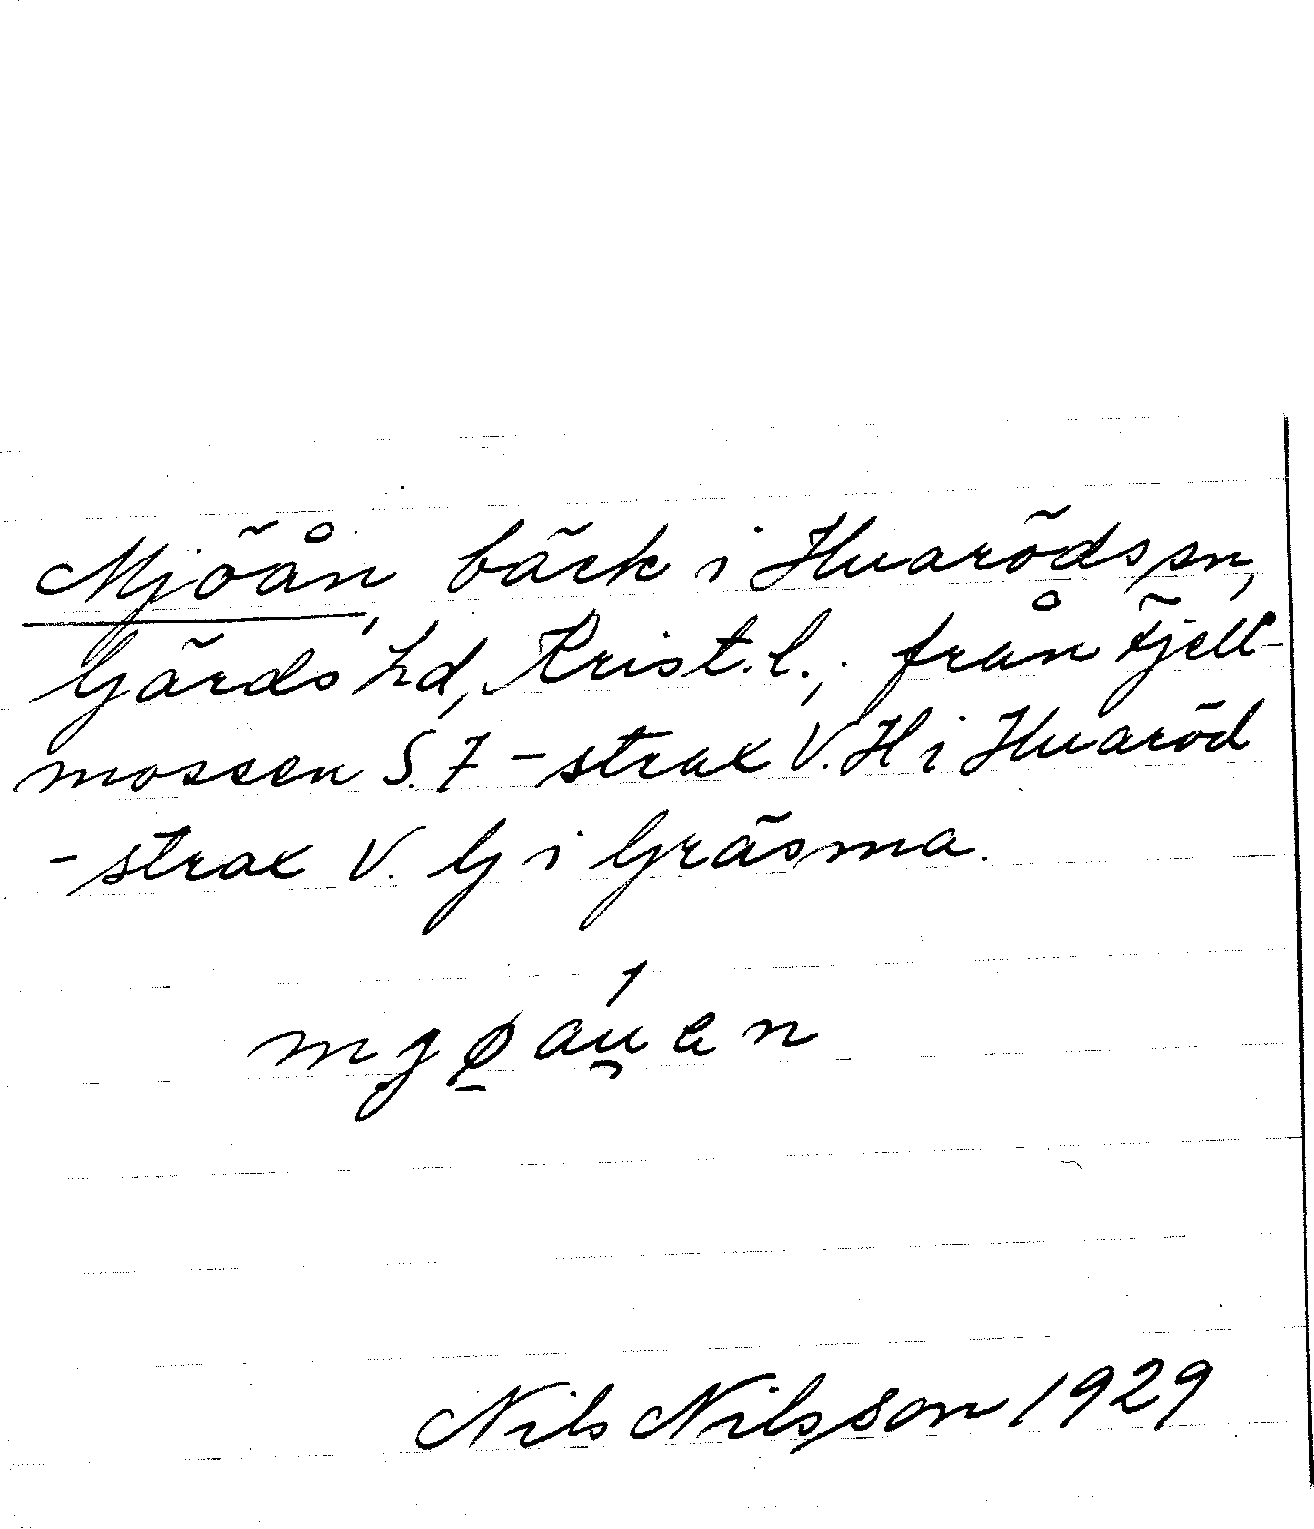 Mjöån, bäck i Huaröds sn,
Gärds hd, Krist. l.; från Fjell-
mossen S. F - strax V. H i Huaröd
- strax V. G i Gräsma.
Nils Nilsson 1929